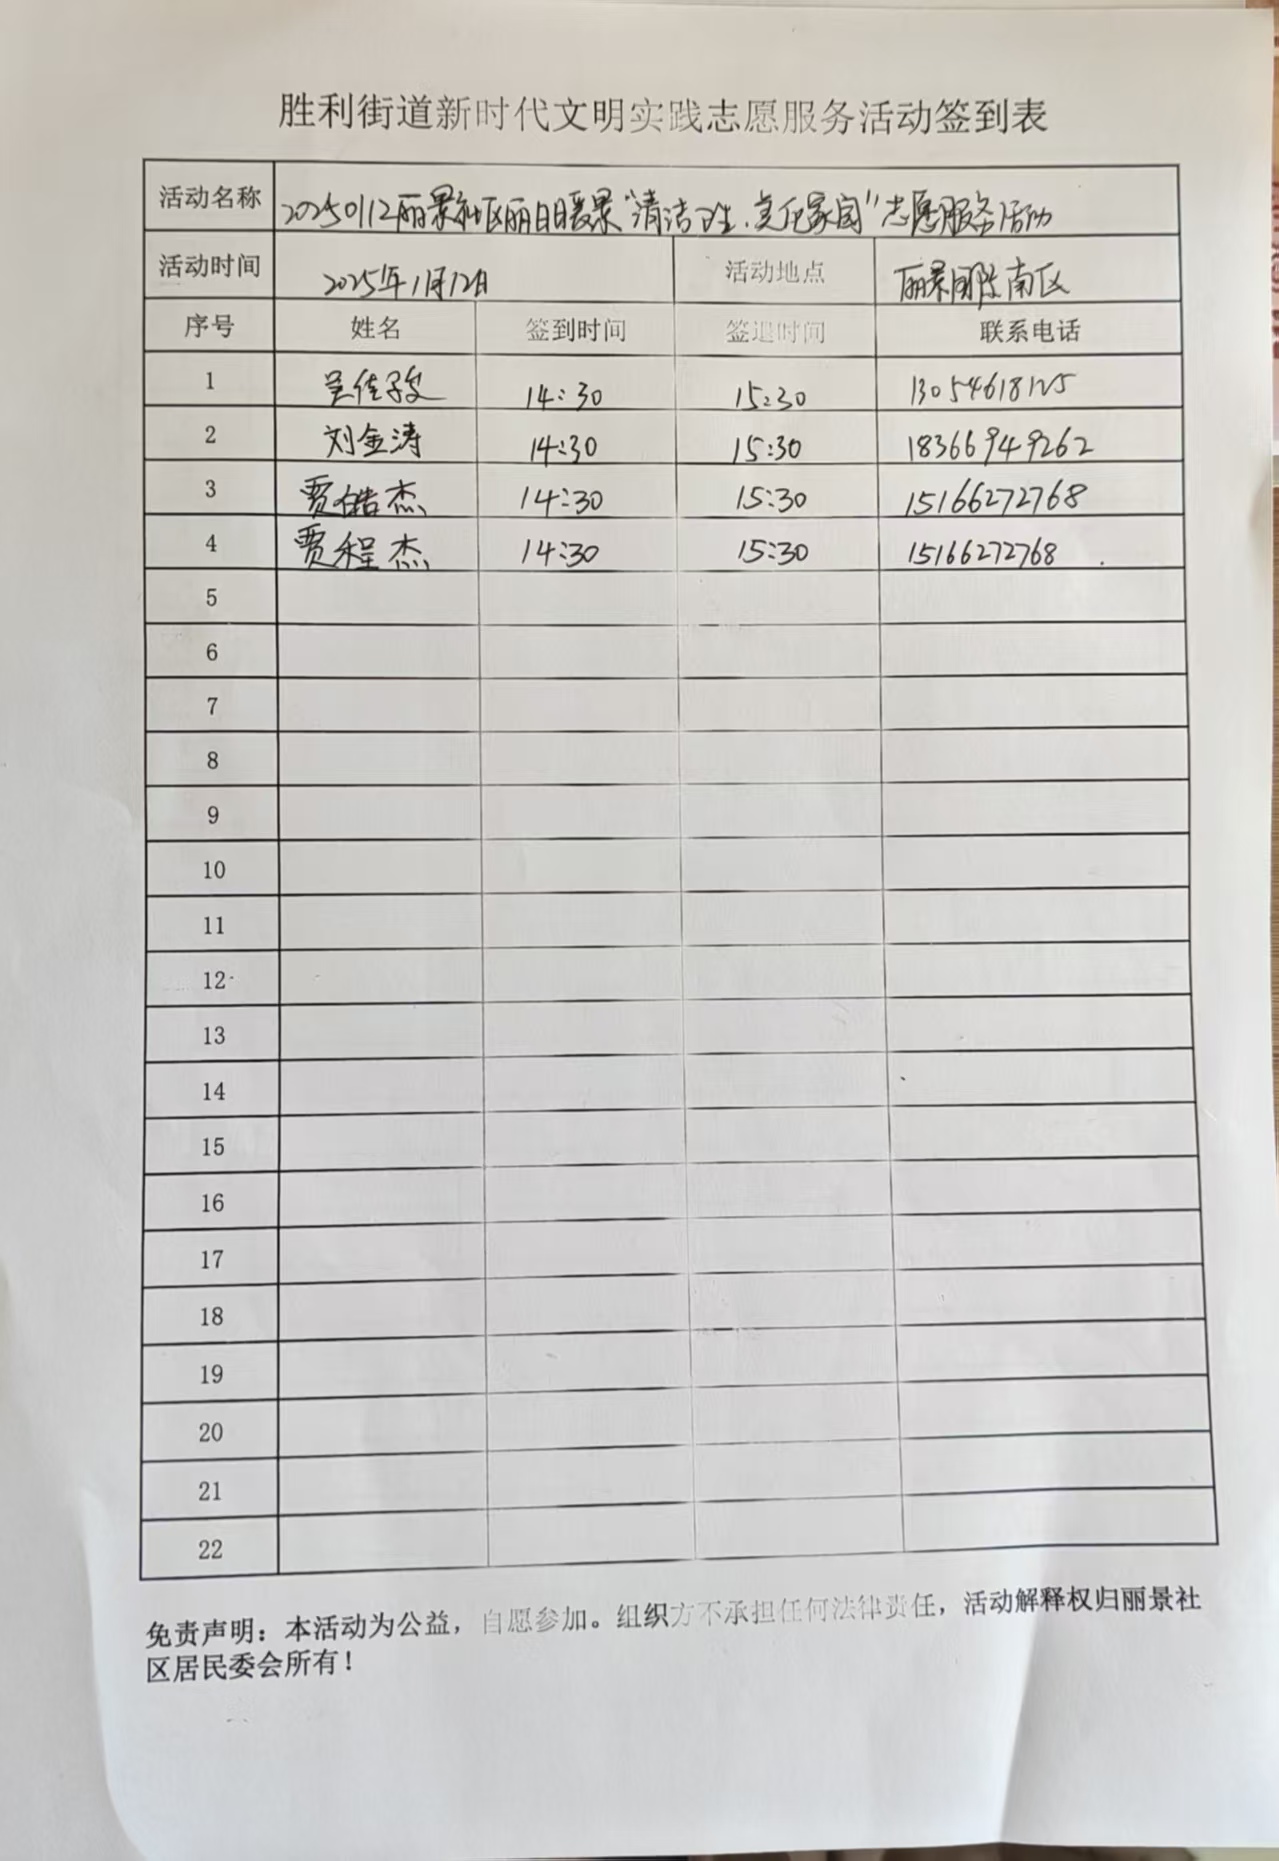 胜利街道新时代文明实践志愿服务活动签到表
活动名称 20250112丽景社区丽日暖景“清洁卫生、美化家园”志愿服务活动
活动时间 2025年1月12日 活动地点 丽景国际南区
序号 姓名 签到时间 签退时间 联系电话
1 吴佳 14:30 15:30 13054618125
2 刘金涛 14:30 15:30 18366949262
3 贾皓杰 14:30 15:30 15166272768
4 贾程杰 14:30 15:30 15166272768
5
6
7
8
9
10
11
12
13
14
15
16
17
18
19
20
21
22
免责声明：本活动为公益，自愿参加。组织方不承担任何法律责任，活动解释权归丽景社
区居民委会所有！